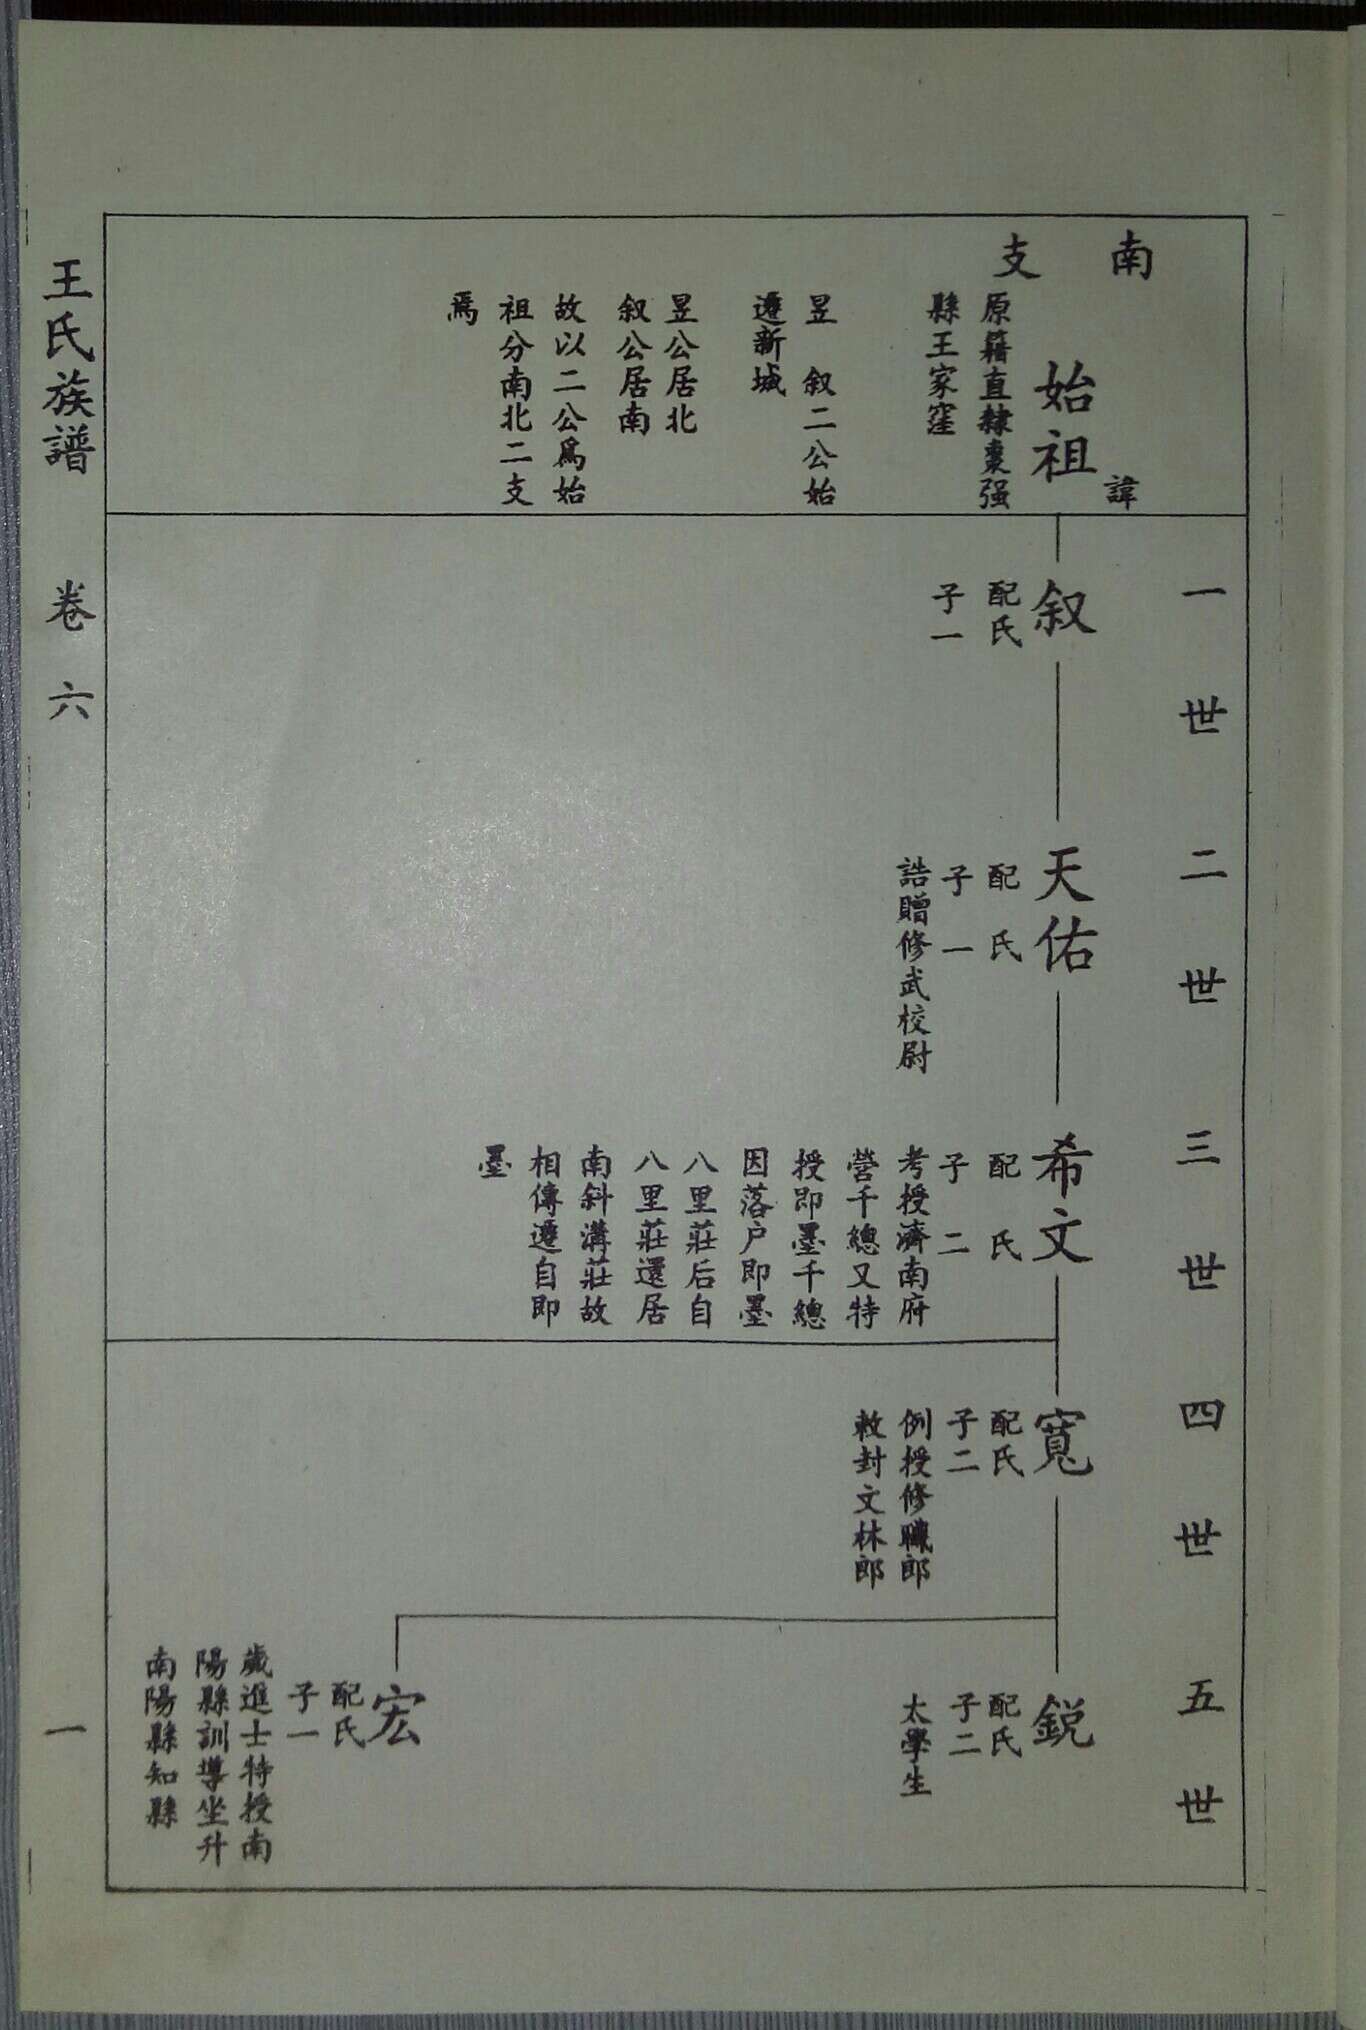 南
支
始祖
諱
原籍直隸棗强
縣王家窪
昱　叙二公始
遷新城
昱公居北
叙公居南
故以二公爲始
祖分南北二支
焉
一世
叙
配氏
子一
二世
天佑
配氏
子一
誥贈修武校尉
三世
希文
配氏
子二
考授濟南府
營千總又特
授即墨千總
因落户即墨
八里莊后自
八里莊還居
南斜溝莊故
相傳遷自即
墨
四世
寬
配氏
子二
例授修職郎
敕封文林郎
五世
鋭
配氏
子二
太學生
宏
配氏
子一
歲進士特授南
陽縣訓導坐升
南陽縣知縣
王氏族譜
卷六
一